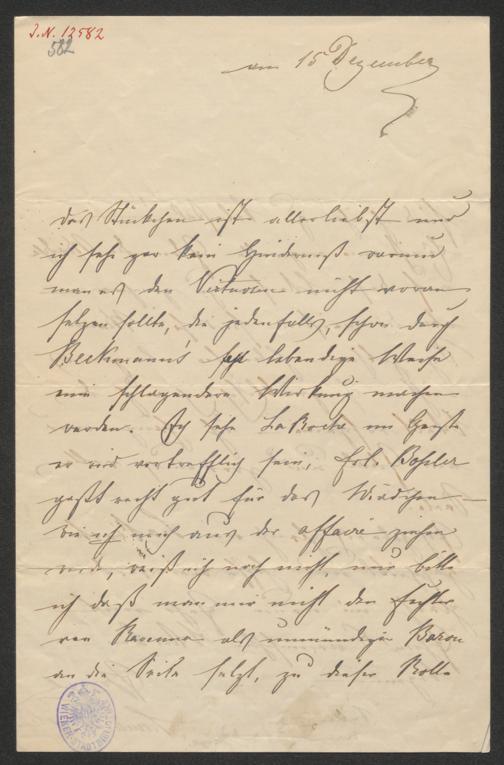 J.N. 13582
582
am 15 Dezember
das Stückchen ist allerliebst und
ich sehe gar kein Hinderniß warum
man es den Virtuosen nicht voran
setzen sollte, die jedenfalls, schon durch
Beckmann's lebendige Weise
eine schlagendere Wirkung machen
werden. Ich sehe La Roche im Geiste
er wird vortrefflich sein, Frl. Boßler
paßt recht gut für das Mädchen —
wie ich mich aus der affaire ziehen
werde, weiß ich noch nicht, nur bitte
ich daß man mir nicht den Fechter
von Ravenna als unmündigen Baron
an die Seite setzt, zu dieser Rolle